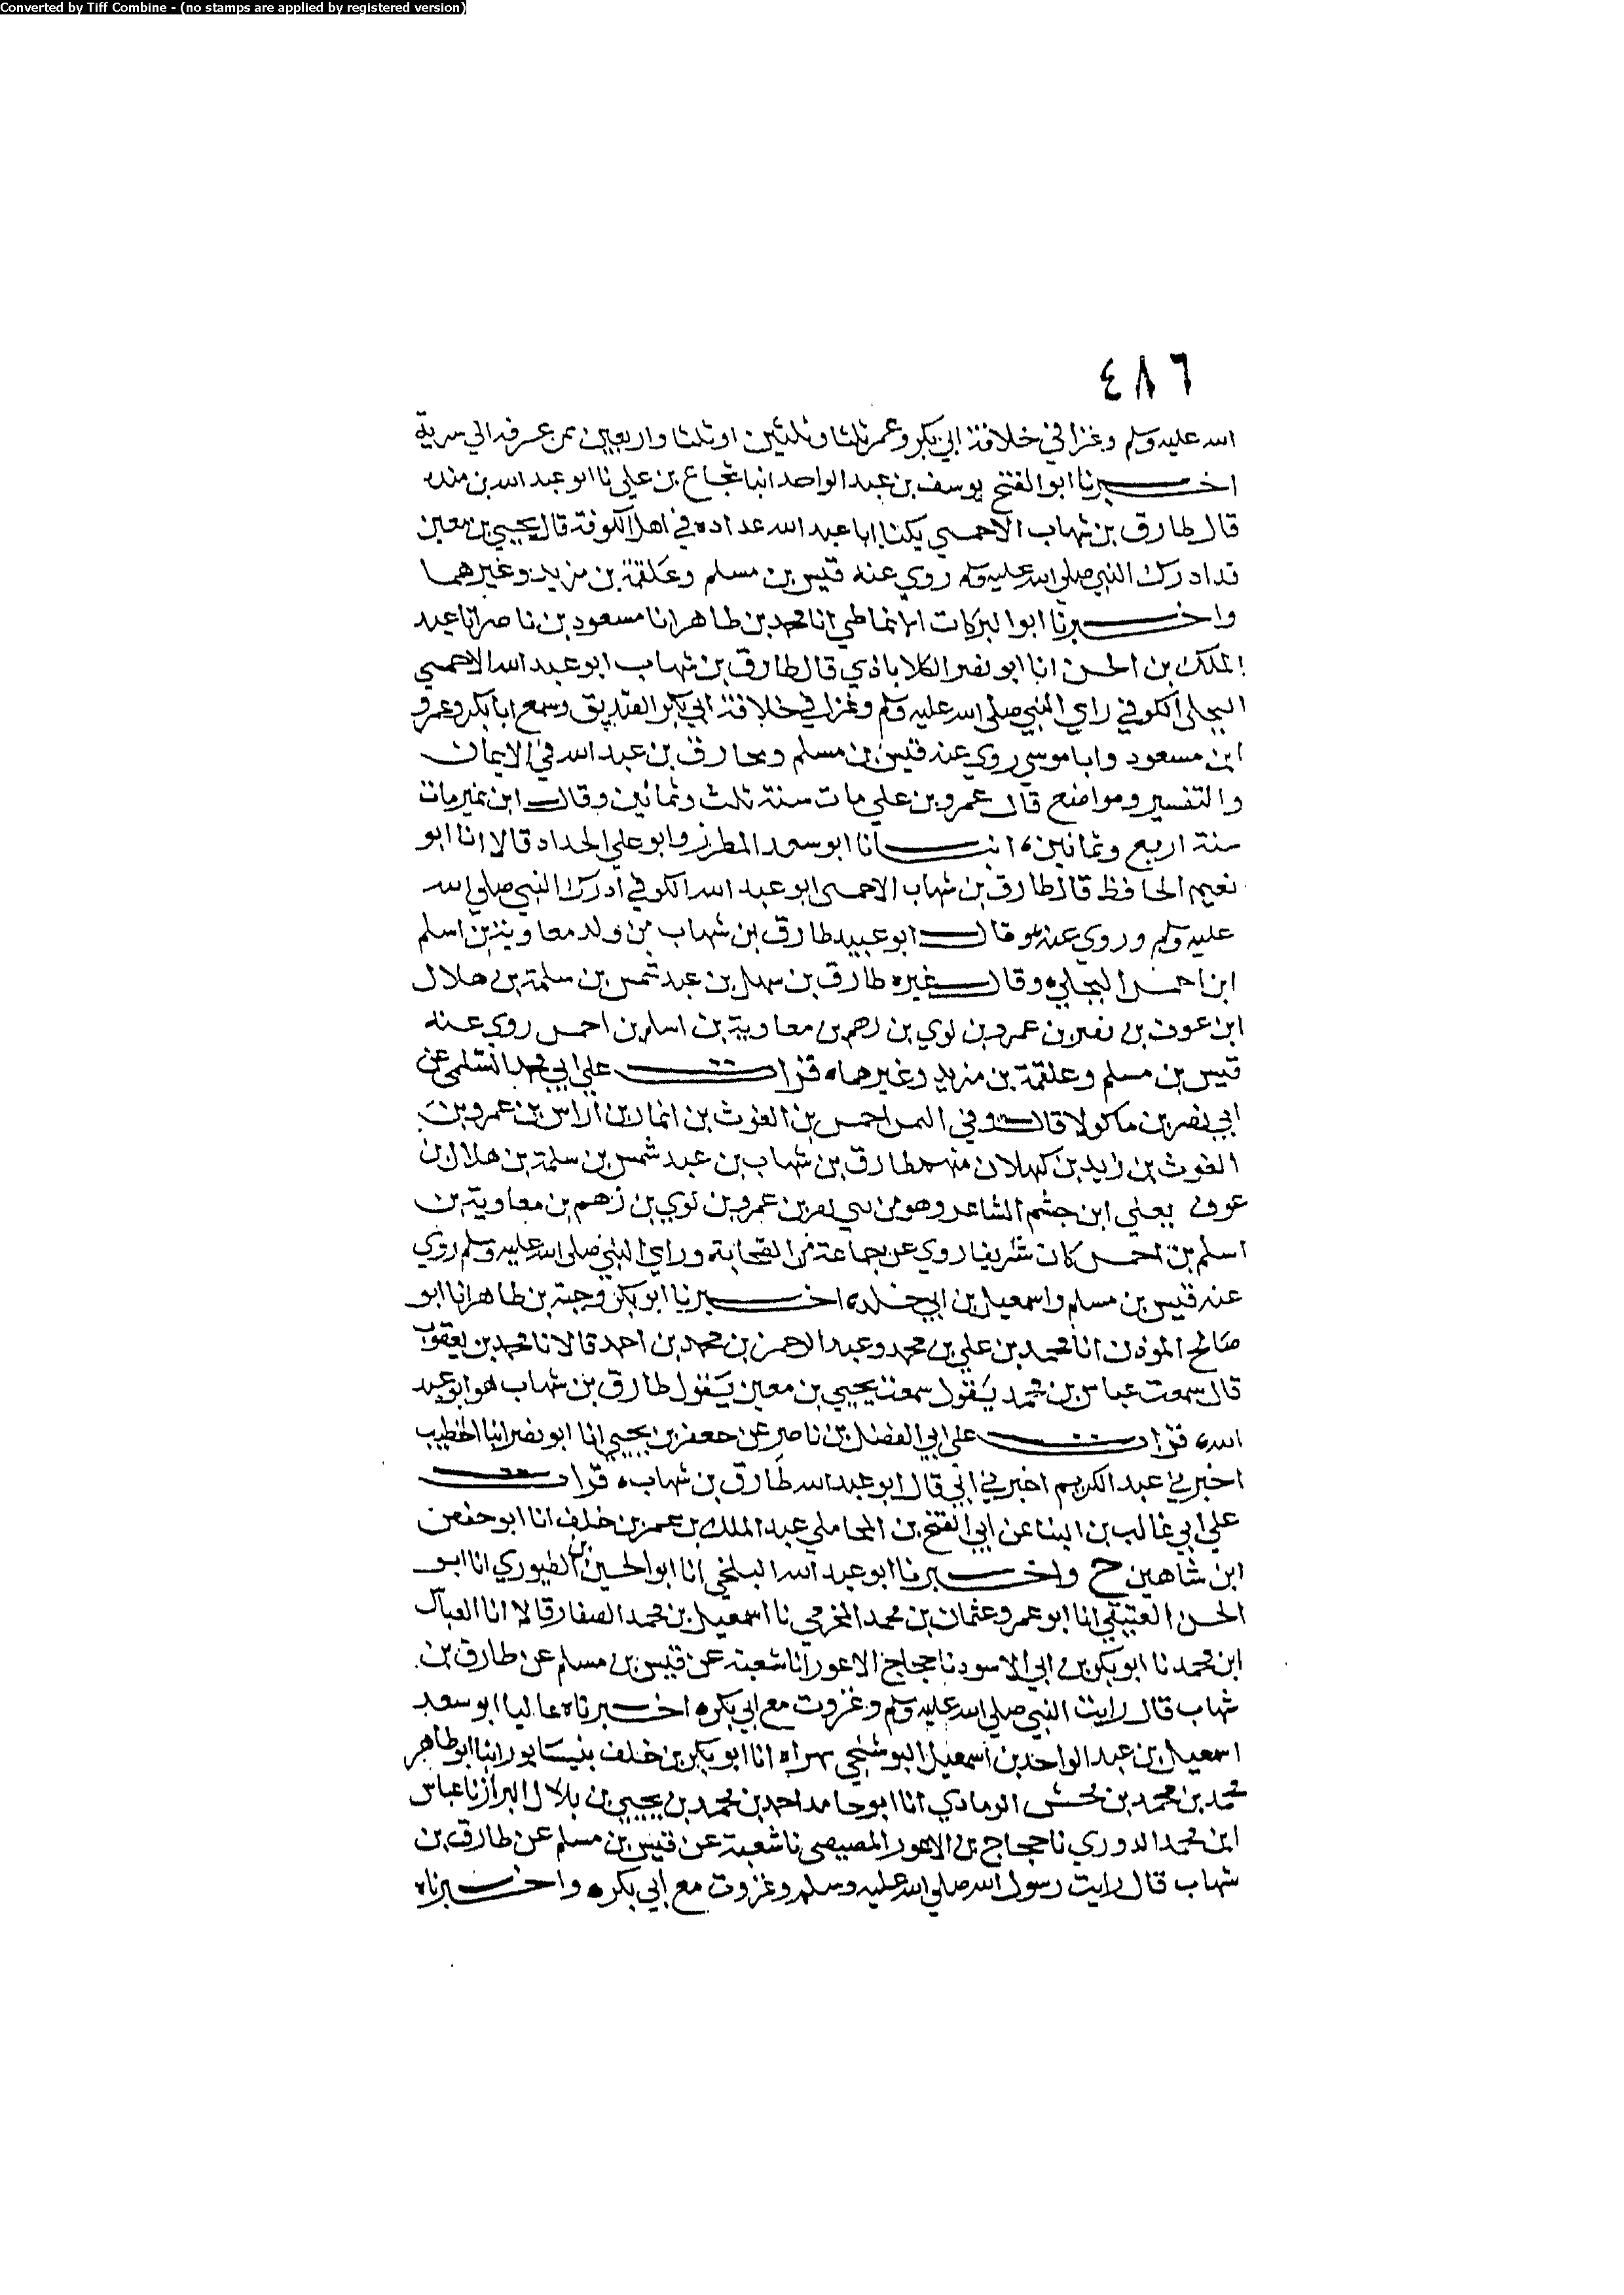 Converted by Tiff Combine - (no stamps are applied by registered version)
٤٨٦
الله عليه وسلم وغزا في خلافة ابي بكر وعمر ثلثا وثلثين او ثلثا واربعين من الي سرية
اخبرنا ابو الفتح يوسف بن عبد الواحد انبا شجاع بن علي نا ابو عبد الله بن منده
قال طارق بن شهاب الاحمسي يكنا ابا عبد الله عداده في اهل الكوفة قال يحيي بن معين
قد ادرك النبي صلي الله عليه وسلم روي عنه قيس بن مسلم وعلقمة بن مزيد وغيرهما
واخبرنا ابوا البركات الانماطي انا محمد بن طاهر انا مسعود بن ناصر انا عبد
الملك بن الحسن انا ابو نصر الكلاباذي قال طارق بن شهاب ابو عبد الله الاحمسي
البجلي الكوفي راي النبي صلي الله عليه وسلم وغزا في خلافة ابي بكر الصديق وسمع ابا بكر وعمر و
ابن مسعود وابا موسي روي عنه قيس بن مسلم ومخارق بن عبد الله في الايمان
والتفسير ومواضع قال عمرو بن علي مات سنة ثلث وثمانين وقال ابن نمير مات
سنة اربع وثمانين، انبانا ابو سعد المطرز وابو علي الحداد قالا انا ابو
نعيم الحافظ قال طارق بن شهاب الاحمسي ابو عبد الله الكوفي ادرك النبي صلي الله
عليه وسلم وروي عنه وقال ابو عبيد طارق بن شهاب من ولد معاوية بن اسلم
ابن احمس البجلي وقال غيره طارق بن سهل بن عبد شمس بن سلمة بن هلال
ابن عوف بن نصر بن عمرو بن لوي بن رهم بن معاوية بن اسلم بن احمس روي عنه
قيس بن مسلم وعلقمة بن مزيد وغيرهما قرات علي ابي محمد السلمي عن
ابي نصر بن ماكولا قال وفي اليمن احمس بن الغوث بن انمار بن اراس بن عمرو بن
الغوث بن زيد بن كهلان منهم طارق بن شهاب بن عبد شمس بن سلمة بن هلال بن
عوف يعني ابن جشم الشاعر وهو من بني نصر بن عمرو بن لوي بن زهم بن معاوية بن
اسلم بن احمس كان شريفا روي عن جماعة من الصحابة وراي النبي صلي الله عليه وسلم روي
عنه قيس بن مسلم واسمعيل بن ابي خلده اخبرنا ابو بكر وجبة بن طاهر انا ابو
صالح الموذن انا محمد بن علي بن محمد وعبد الرحمن بن محمد بن احمد قالا نا محمد بن يعقوب
قال سمعت عباس بن محمد يقول سمعت يحيي بن معين يقول طارق بن شهاب هو ابو عبد
الله، قرات علي ابي الفضل بن ناصر عن جعفر بن يحيي انا ابو نصر انبا الخطيب
اخبرني عبد الكريم اخبرني ابي قال ابو عبد الله طارق بن شهاب، قرات
علي ابي غالب بن البنا عن ابي الفتح بن المحاملي عبد الملك بن عمر بن خلف انا ابو حفص
ابن شاهين ح واخبرنا ابو عبد الله البلخي انا ابو الحسين بن الطيوري انا ابو
الحسن العتيقي انا ابو عمرو عثمان بن محمد المخرمي نا اسمعيل بن محمد الصفار قالا انا العباس
ابن محمد نا ابو بكر بن ابي الاسود نا حجاج الاعور انا شعبة عن قيس بن مسلم عن طارق بن
شهاب قال رايت النبي صلي الله عليه وسلم وغزوت مع ابي بكر، اخبرناه عاليا ابو سعد
اسمعيل بن عبد الواحد بن اسمعيل البوشنجي بهراه انا ابو بكر بن خلف بنيسابور انبا ابو طاهر
محمد بن محمد بن محمش الزيادي انا ابو حامد احمد بن محمد بن يحيي بن بلال البزاز نا عباس
ابن محمد الدوري نا حجاج بن الاعور المصيصي نا شعبة عن قيس بن مسلم عن طارق بن
شهاب قال رايت رسول الله صلي الله عليه وسلم وغزوت مع ابي بكر، واخبرناه